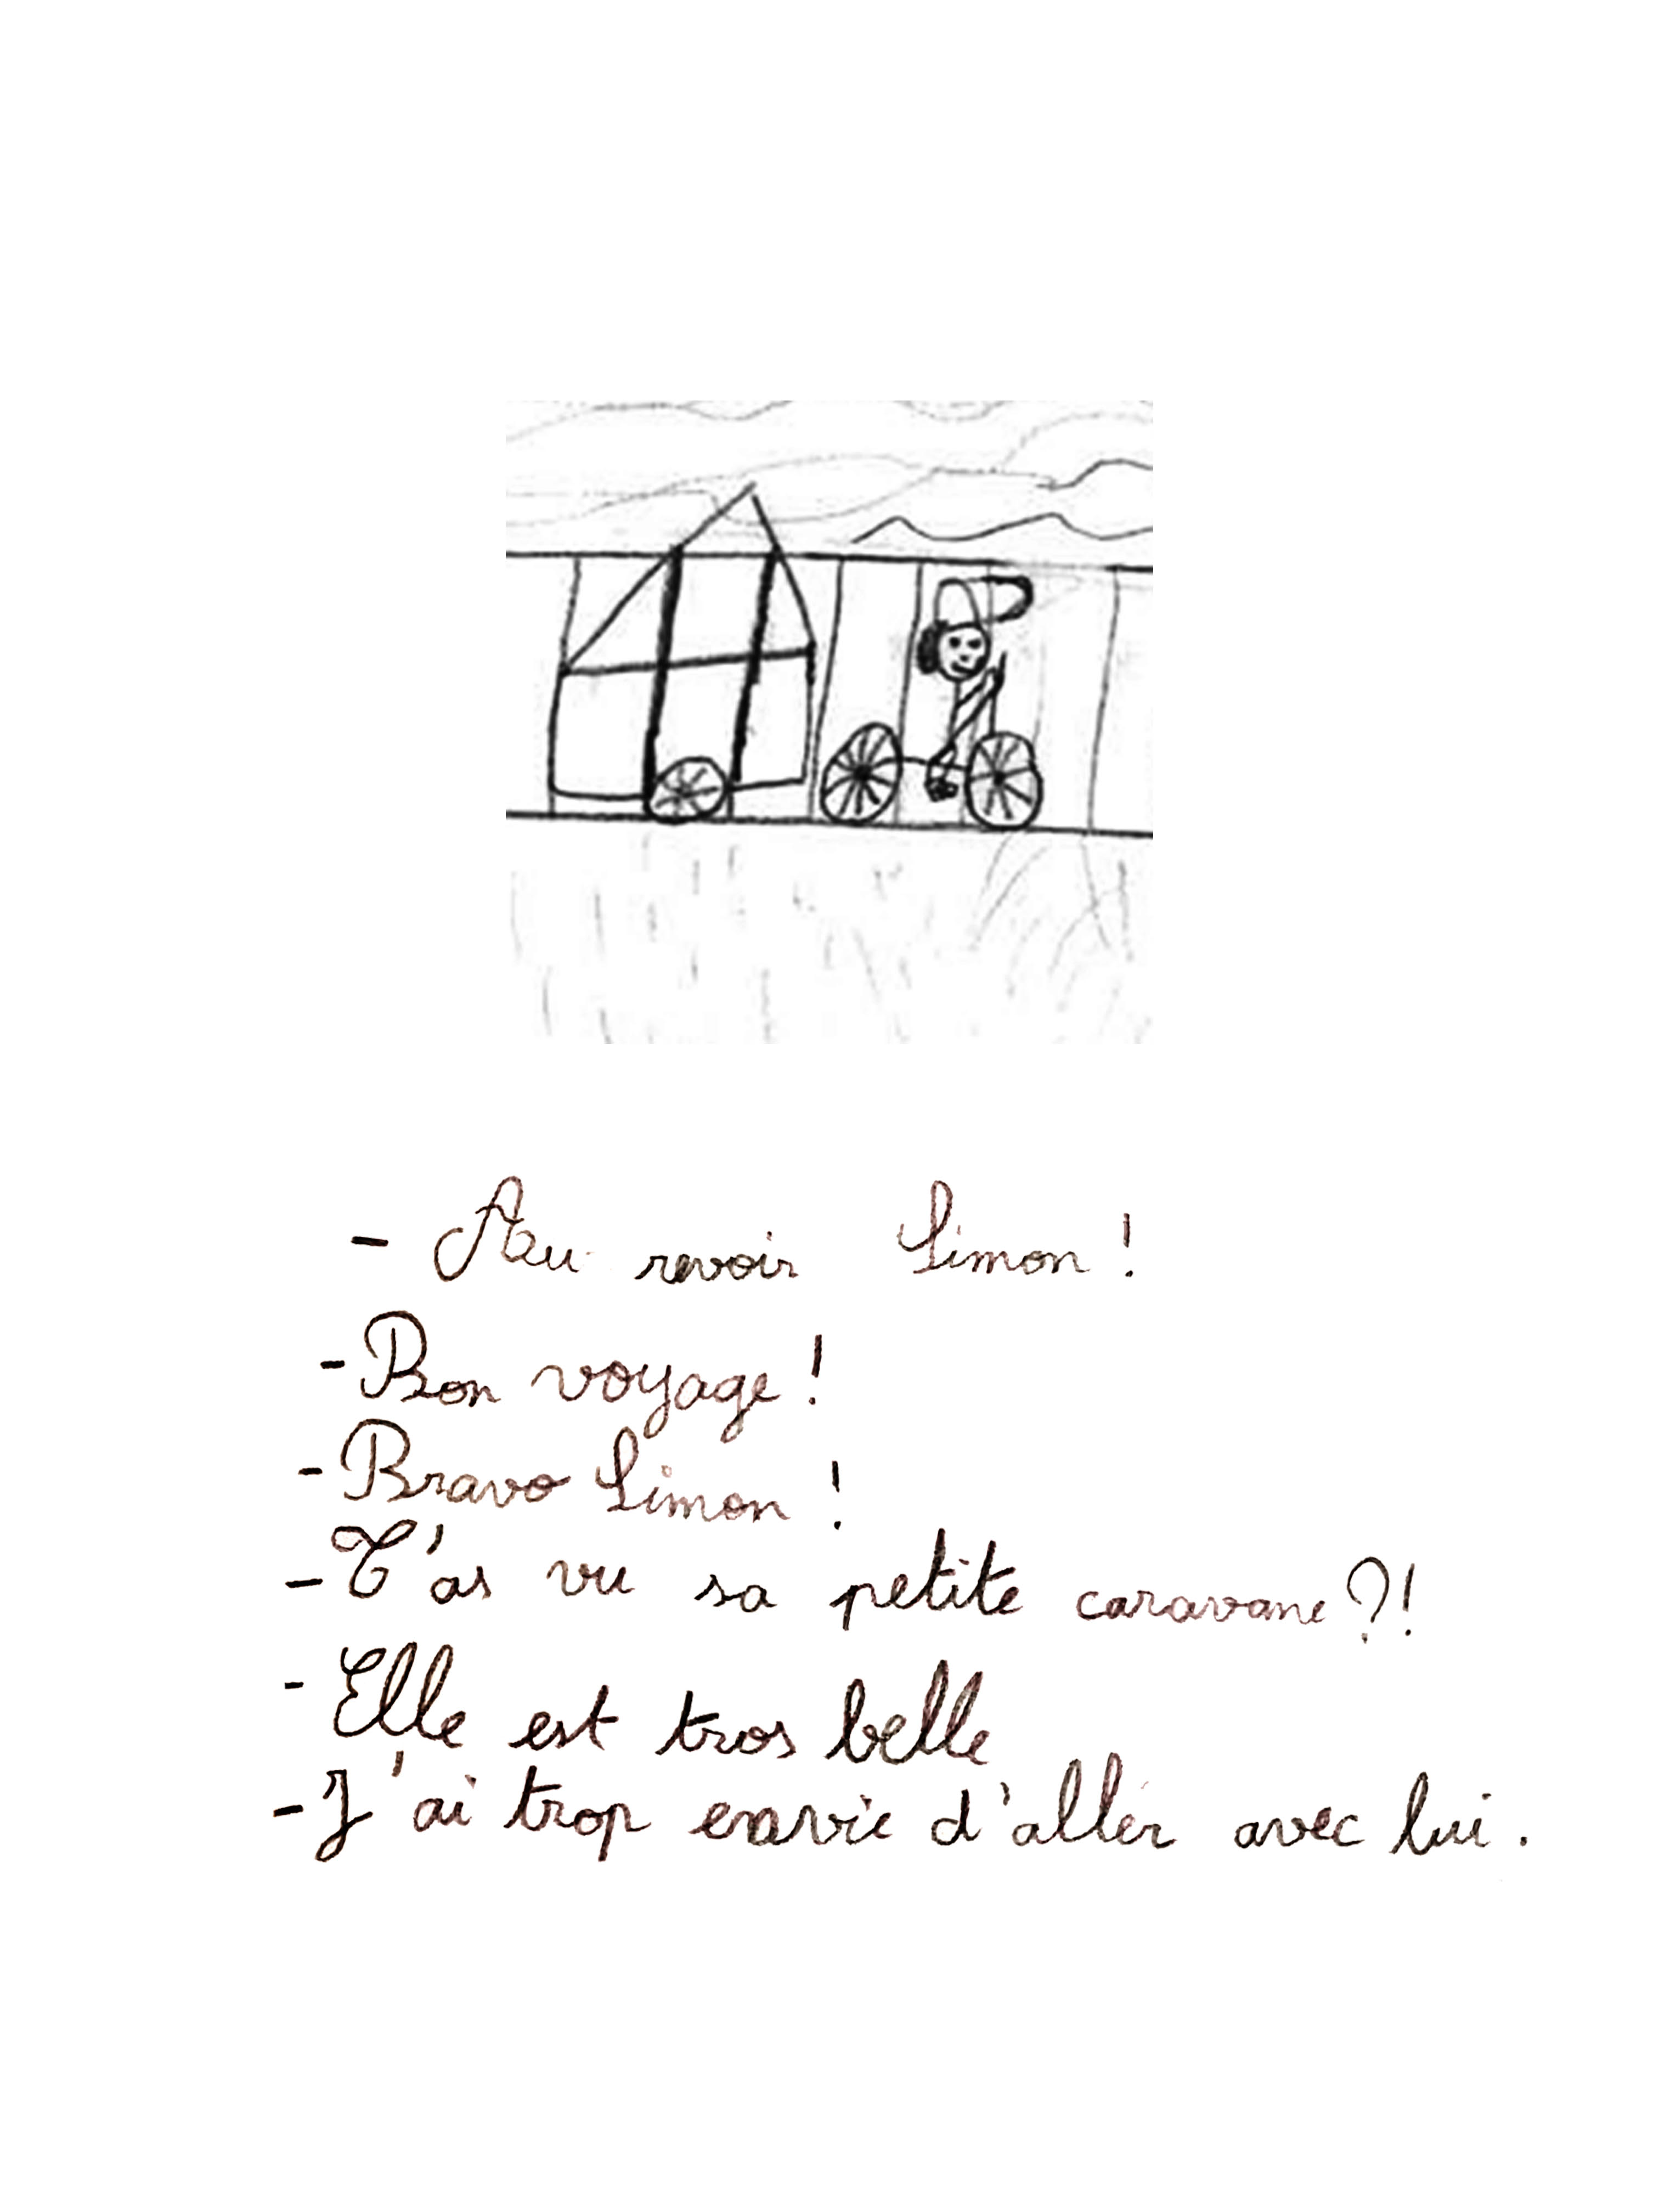 - Aau revoir Simon !
- Bon voyage !
- Bravo Simon !
- T'as vu sa petite caravane ?!
- Elle est tros belle
- J'ai trop envie d'aller avec lui.